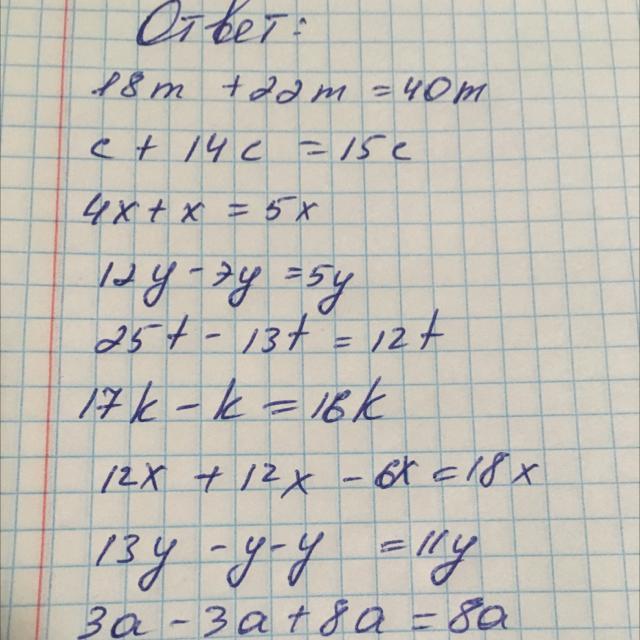 Ответ:
18m + 22m = 40m
c + 14c = 15c
4x + x = 5x
12y - 7y = 5y
25t - 13t = 12t
17k - k = 16k
12x + 12x - 6x = 18x
13y - y - y = 11y
3a - 3a + 8a = 8a